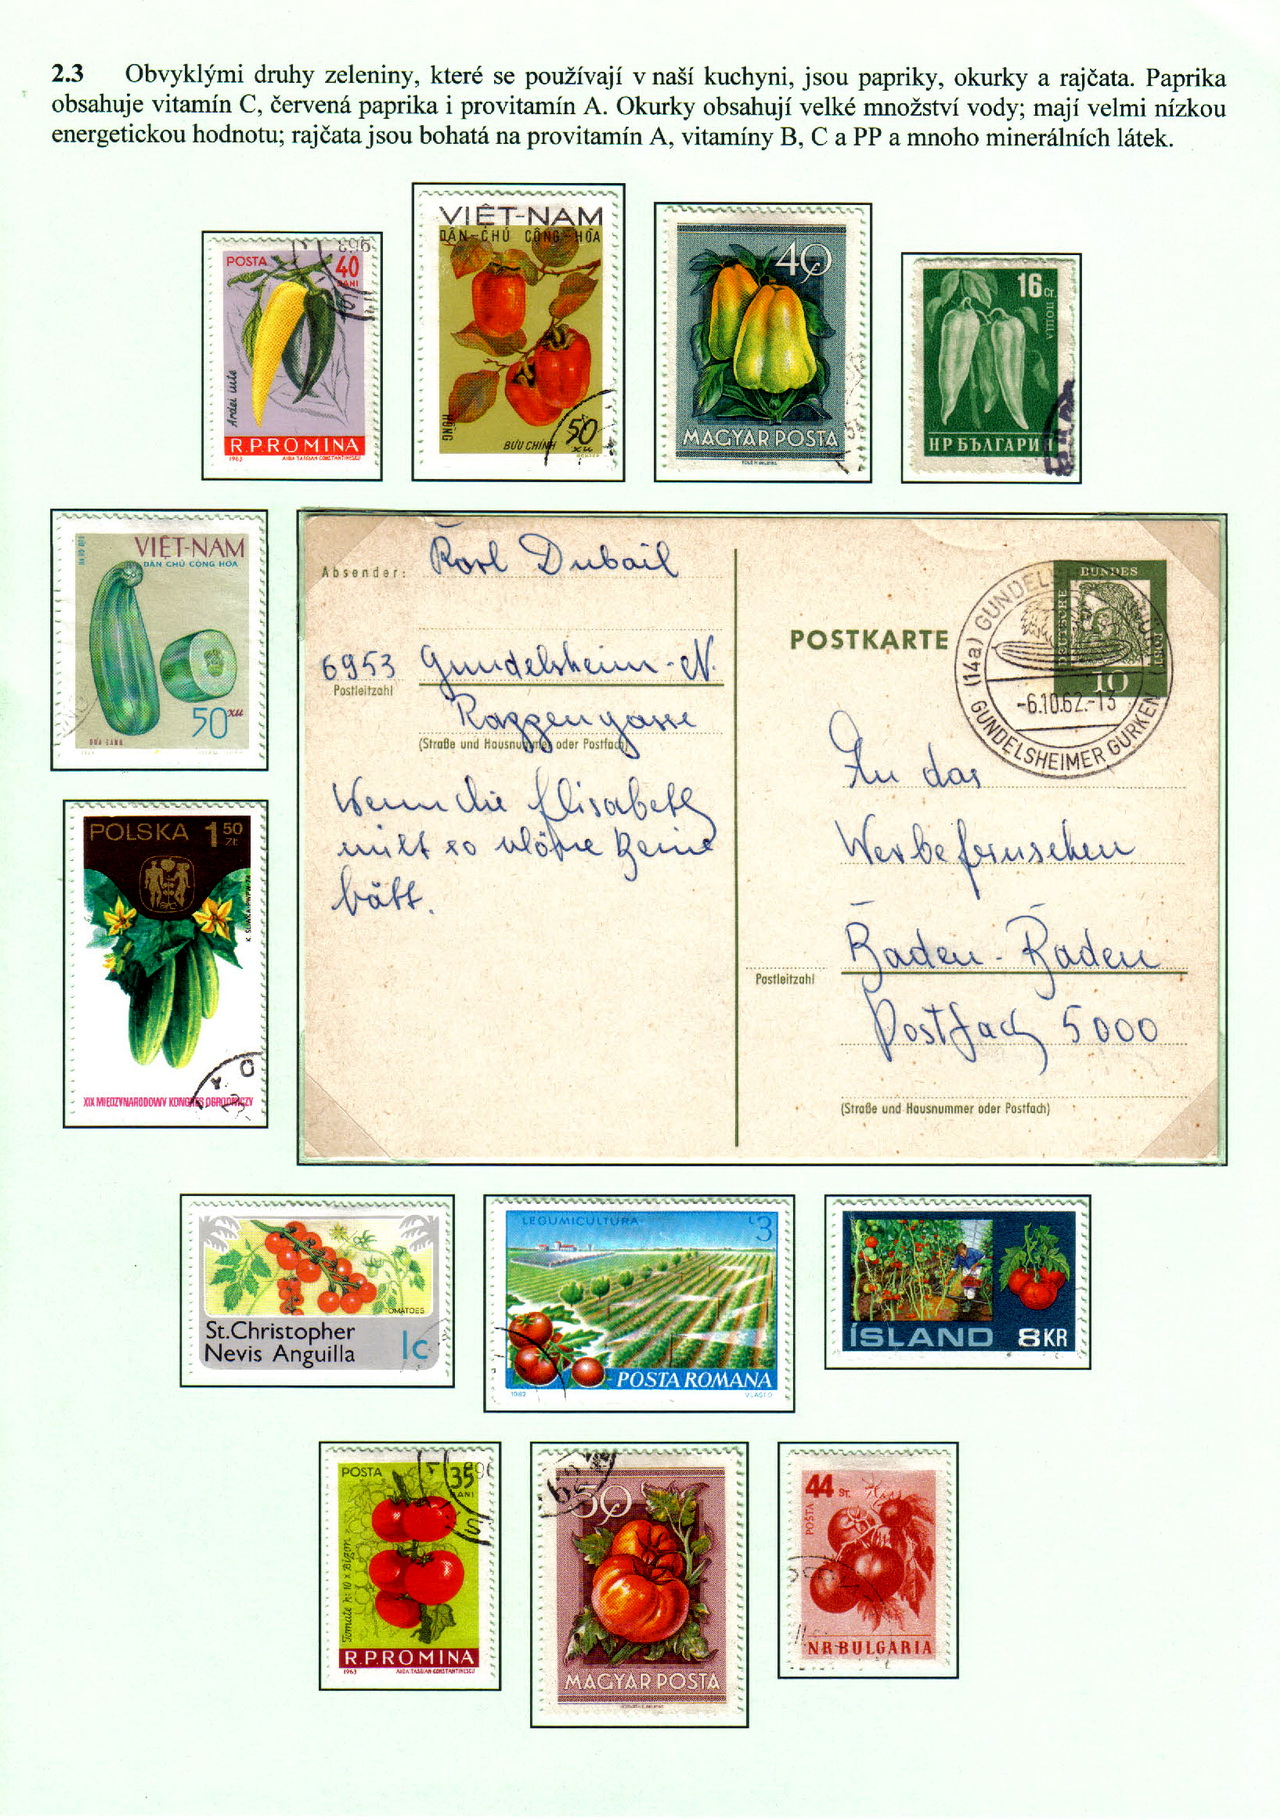 2.3 Obvyklými druhy zeleniny, které se používají v naší kuchyni, jsou papriky, okurky a rajčata. Paprika
obsahuje vitamín C, červená paprika i provitamín A. Okurky obsahují velké množství vody; mají velmi nízkou
energetickou hodnotu; rajčata jsou bohatá na provitamín A, vitamíny B, C a PP a mnoho minerálních látek.
POSTA
40
BANI
Ardei iute
R.P.ROMINA
1963 AIDA TASGIAN-CONSTANTINESCU
VIỆT-NAM
DÂN-CHỦ CỘNG-HÒA
HỒNG
BƯU CHÍNH
50
XU
40
MAGYAR POSTA
16 Ст.
ПОЩА
НР БЪЛГАРИЯ
VIỆT-NAM
DÂN CHỦ CỘNG HÒA
50 xu
POLSKA 1 50
ZŁ
XIX MIĘDZYNARODOWY KONGRES OGRODNICZY
Absender: Karl Dubail
6953 Gundelsheim-N.
Postleitzahl
Raggengasse
(Straße und Hausnummer oder Postfach)
Wenn die Elisabeth
nicht so schöne Beine
hätt.
POSTKARTE
DEUTSCHE BUNDESPOST
10
(14a) GUNDELSHEIM
-6.10.62.-13
GUNDELSHEIMER GURKEN
An das
Werbefernsehen
Baden-Baden
Postleitzahl
Postfach 5000
(Straße und Hausnummer oder Postfach)
TOMATOES
St.Christopher
Nevis Anguilla 1c
LEGUMICULTURA L3
POSTA ROMANA
1982 VLASTO
ÍSLAND 8KR
POSTA
35
BANI
R.P.ROMINA
1963 AIDA TASGIAN-CONSTANTINESCU
50
MAGYAR POSTA
44 St.
POŠTA
NR BULGARIA